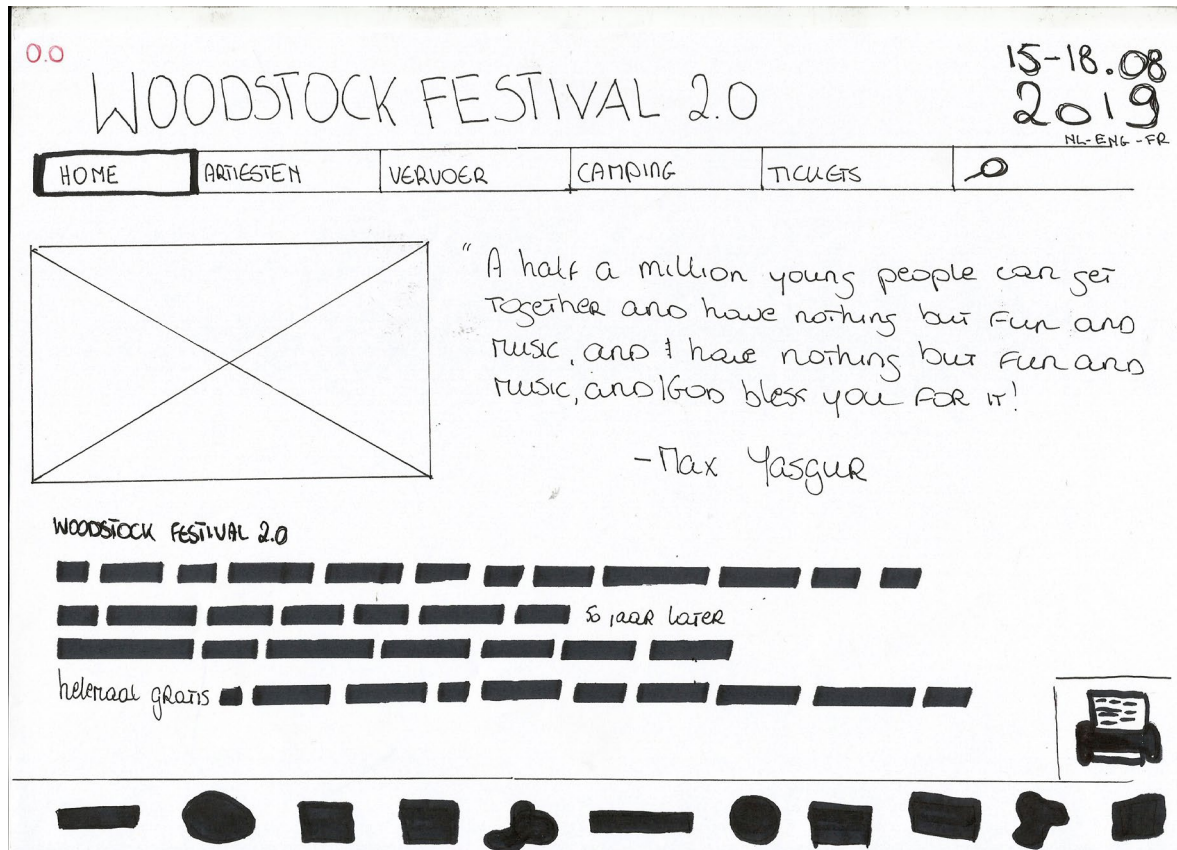 0.0
WOODSTOCK FESTIVAL 2.0
15-18.08
2019
NL-ENG-FR
HOME ARTIESTEN VERVOER CAMPING TICKETS
" A half a million young people can get
together and have nothing but fun and
music, and I have nothing but fun and
music, and God bless you for it!
-Max Yasgur
WOODSTOCK FESTIVAL 2.0
50 jaar later
helemaal gratis